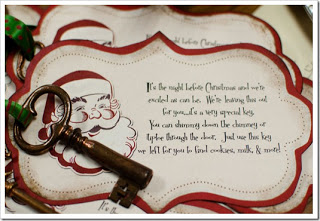 It's the night before Christmas and we're
excited as can be. We're leaving this out
for you...it's a very special key.
You can shimmy down the chimney or
tiptoe through the door. Just use this key
we left for you to find cookies, milk, & more!